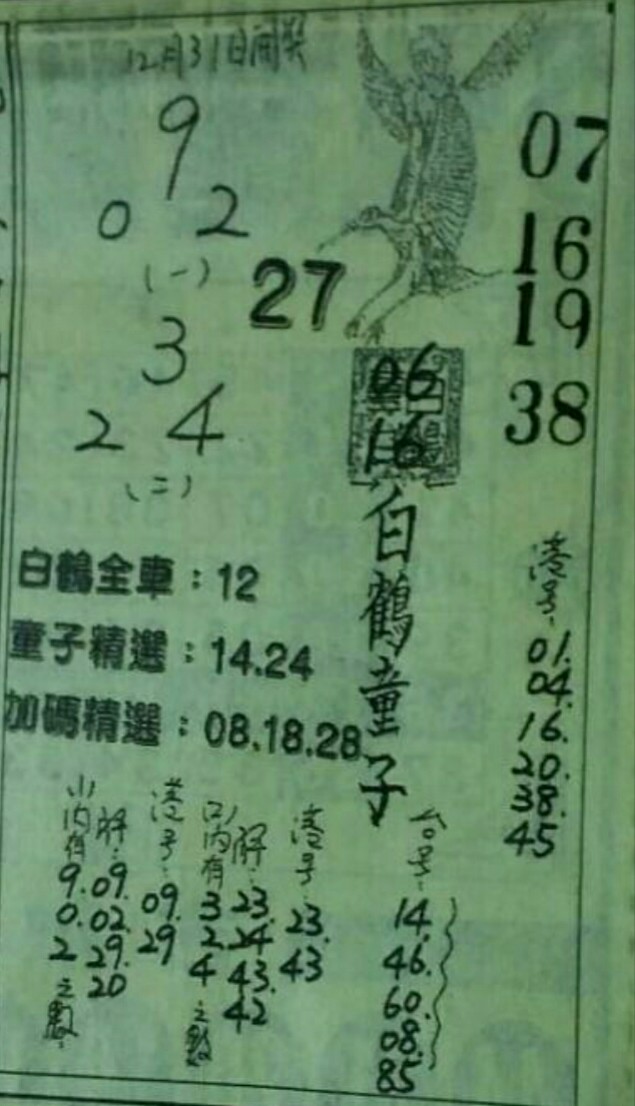 12月31日開獎
9
0 2
(一)
27
07
16
19
38
3
2 4
(二)
06
16
白鶴童子
白鶴全車：12
童子精選：14.24
加碼精選：08.18.28
港号：
01.
04.
16.
20.
38.
45
(一)内有
9.
0.
2
之數
解：
09.
02.
29.
20
港号：
09.
29
(二)内有
3
2
4
之數
解：
23.
24
43.
42
港号：
23.
43
台号：
14.
46.
60.
08.
85